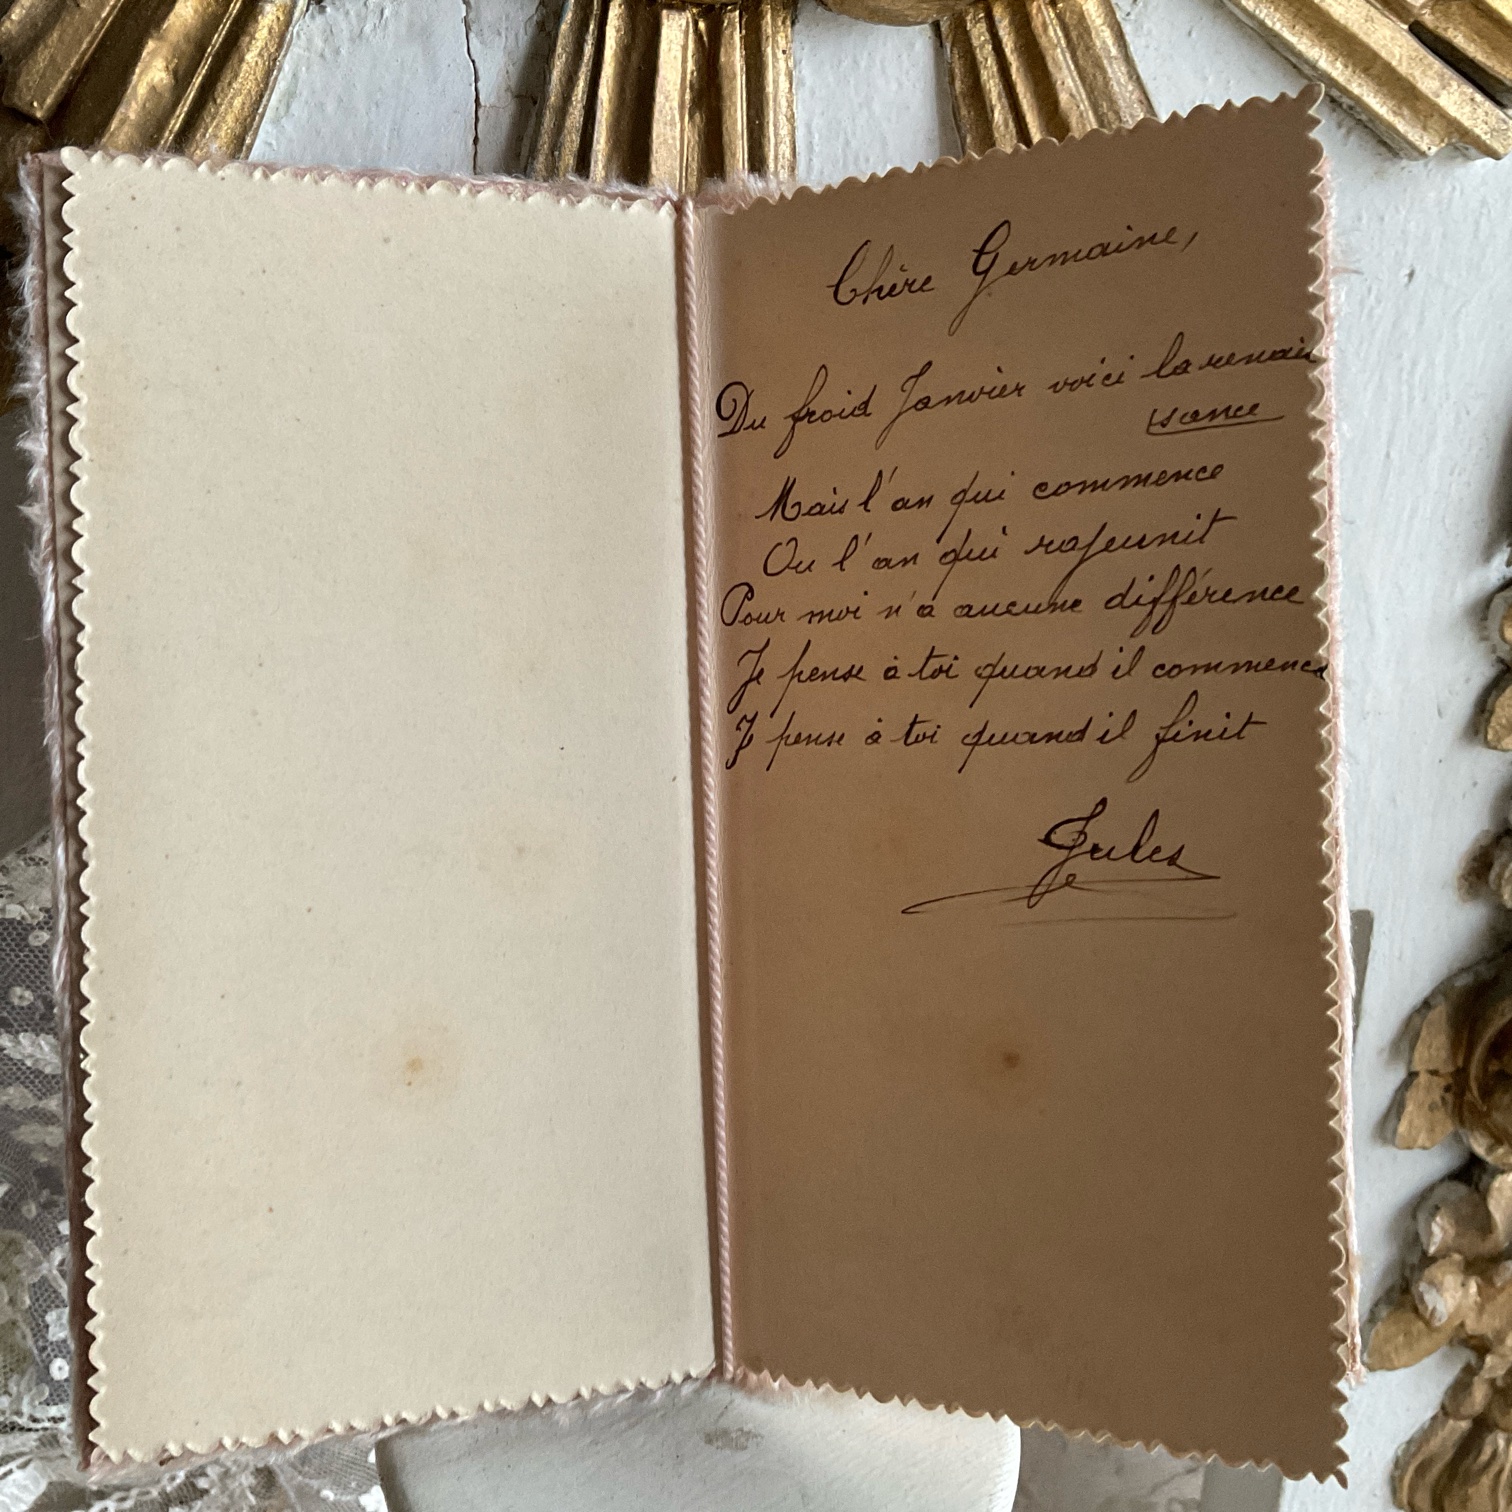 Chère Germaine,
Du froid Janvier voici la renais
sance
Mais l'an qui commence
Ou l'an qui rajeunit
Pour moi n'a aucune différence
Je pense à toi quand il commence
Je pense à toi quand il finit
Jules